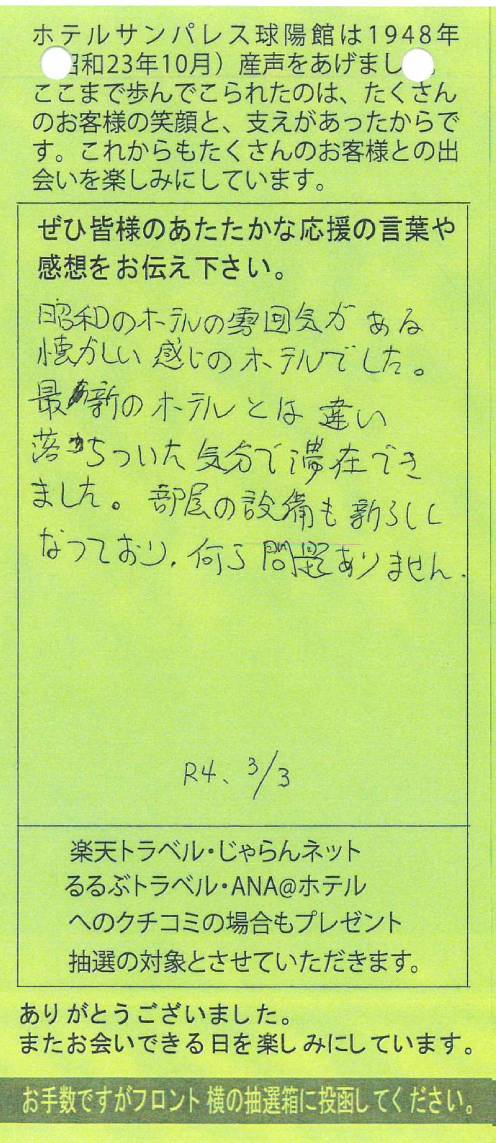 ホテルサンパレス球陽館は1948年
昭和23年10月）産声をあげまし
ここまで歩んでこられたのは、たくさん
のお客様の笑顔と、支えがあったからで
す。これからもたくさんのお客様との出
会いを楽しみにしています。
ぜひ皆様のあたたかな応援の言葉や
感想をお伝え下さい。
昭和のホテルの雰囲気がある
懐かしい感じのホテルでした。
最新のホテルとは違い
落ちついた気分で滞在でき
ました。部屋の設備も新らしく
なっており、何ら問題ありません.
R4、3/3
楽天トラベル・じゃらんネット
るるぶトラベル・ANA@ホテル
へのクチコミの場合もプレゼント
抽選の対象とさせていただきます。
ありがとうございました。
またお会いできる日を楽しみにしています。
お手数ですがフロント横の抽選箱に投函してください。